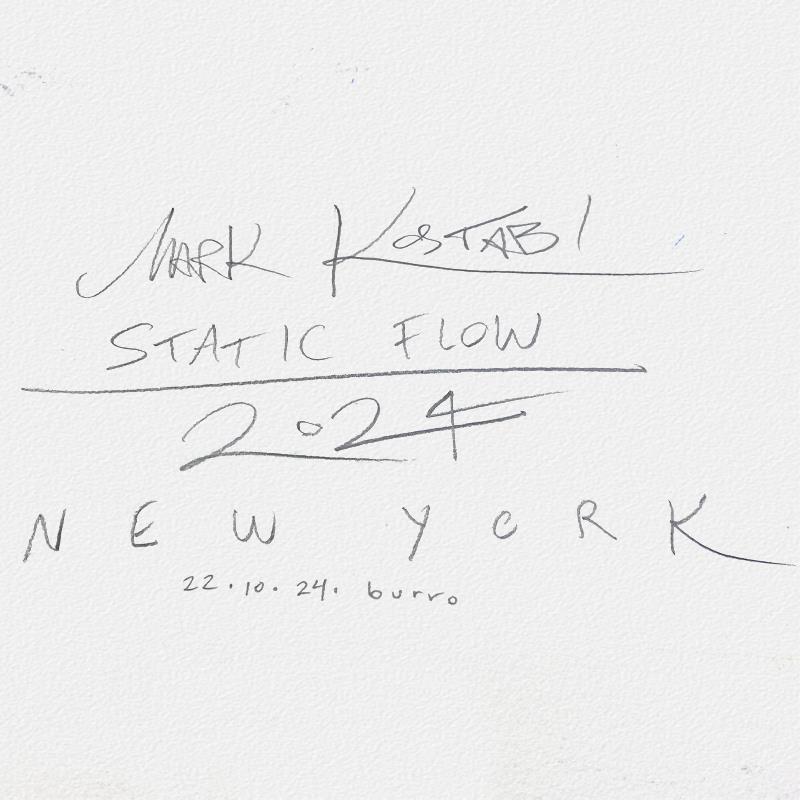 MARK KOSTABI
STATIC FLOW
2024
NEW YORK
22.10.24. burro